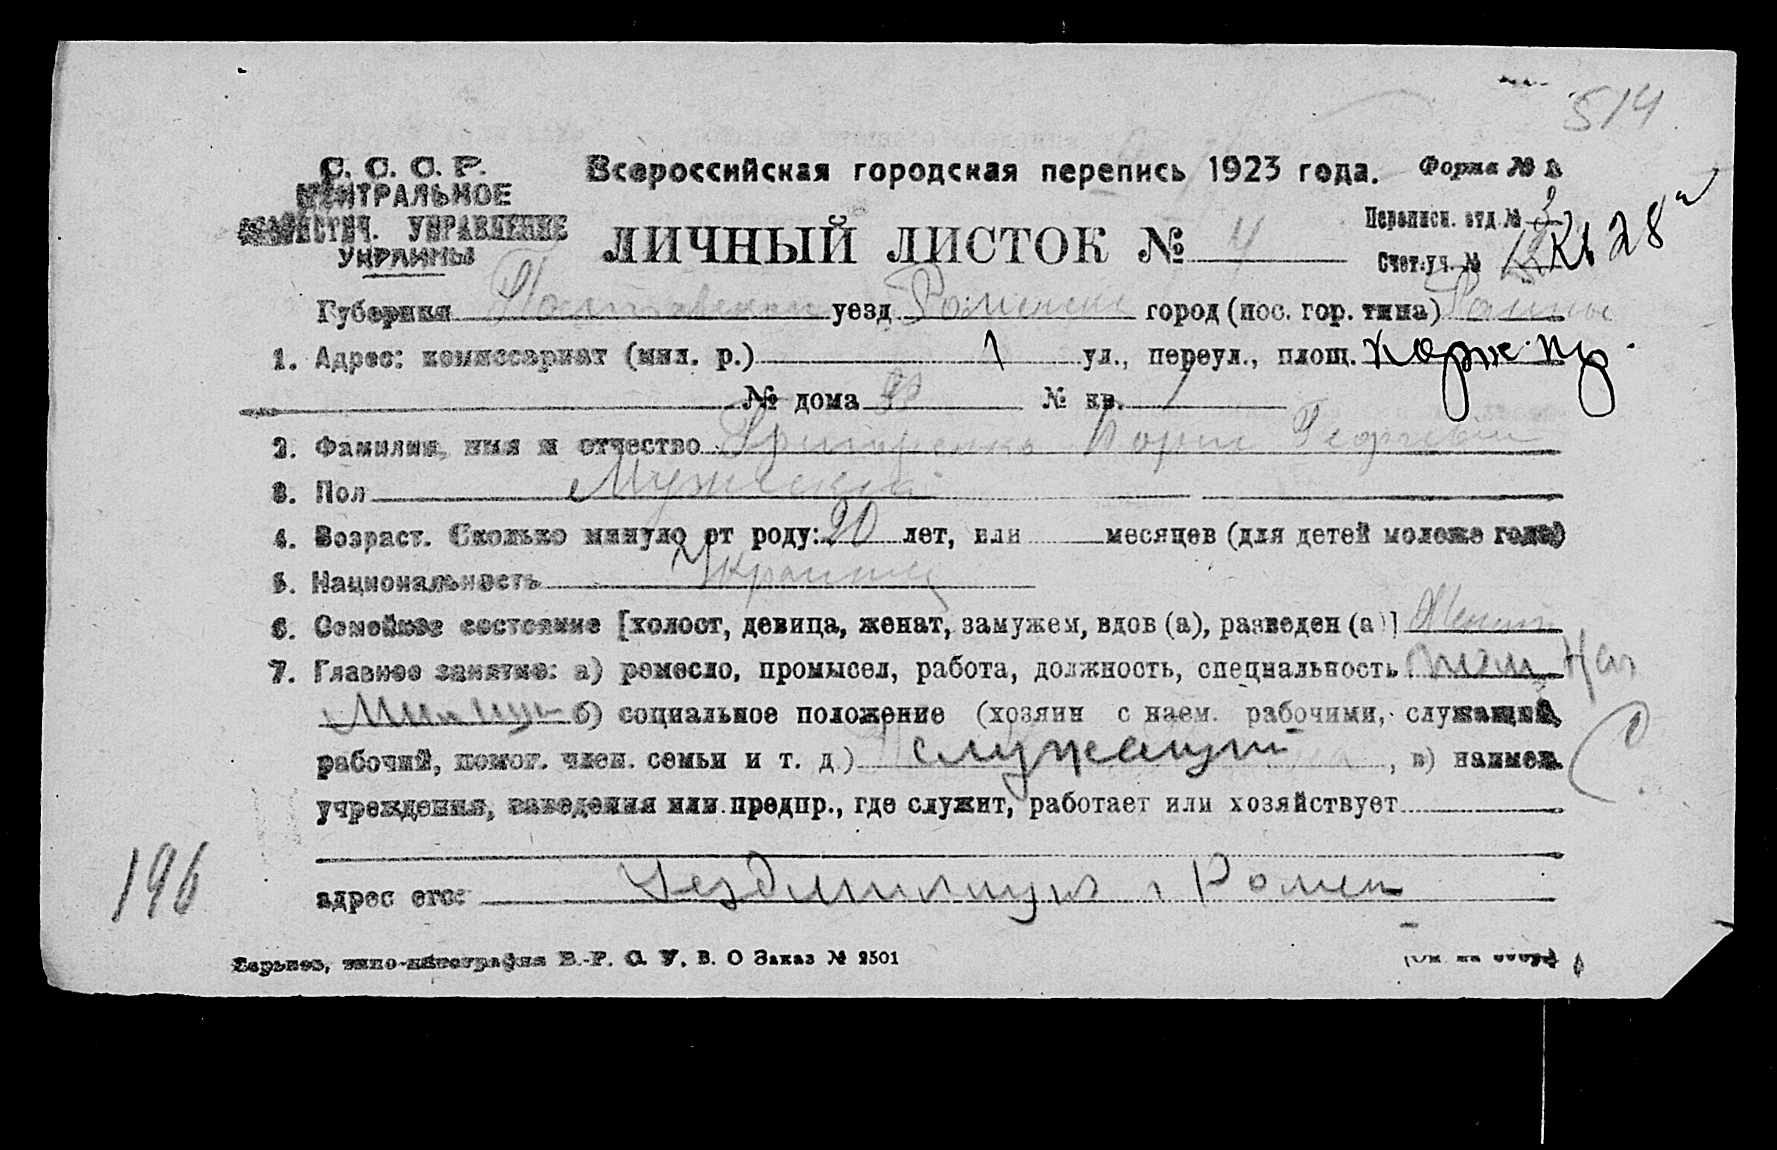 514
С. С. С. Р.
ЦЕНТРАЛЬНОЕ
СТАТИСТИЧ. УПРАВЛЕНИЕ
УКРАИНЫ
Всероссийская городская перепись 1923 года.
Форма № А
Переписн. отд. № 3
ЛИЧНЫЙ ЛИСТОК № 4
Счет. уч. № Кв 28
Губерния Полтавская уезд Роменск город (пос. гор. типа) Ромны
1. Адрес: комиссариат (мил. р.) 1 ул., переул., площ. Корж. пр.
№ дома № кв. 1
2. Фамилия, имя и отчество Григоренко Борис Георгиевич
3. Пол Мужской
4. Возраст. Сколько минуло от роду: 20 лет, или месяцев (для детей моложе года)
5. Национальность Украинец
6. Семейное состояние [холост, девица, женат, замужем, вдов (а), разведен (а)] Женат
7. Главное занятие: а) ремесло, промысел, работа, должность, специальность Пом. Нач
Милиции б) социальное положение (хозяин с наем. рабочими, служащий,
рабочий, помог. член. семьи и т. д.) служащий, в) наимен.
учреждения, заведения или предпр., где служит, работает или хозяйствует
196
адрес его: Уездмилиция г Ромен
Харьков, типо-литография В.-Р. С. У. В. О Заказ № 2501